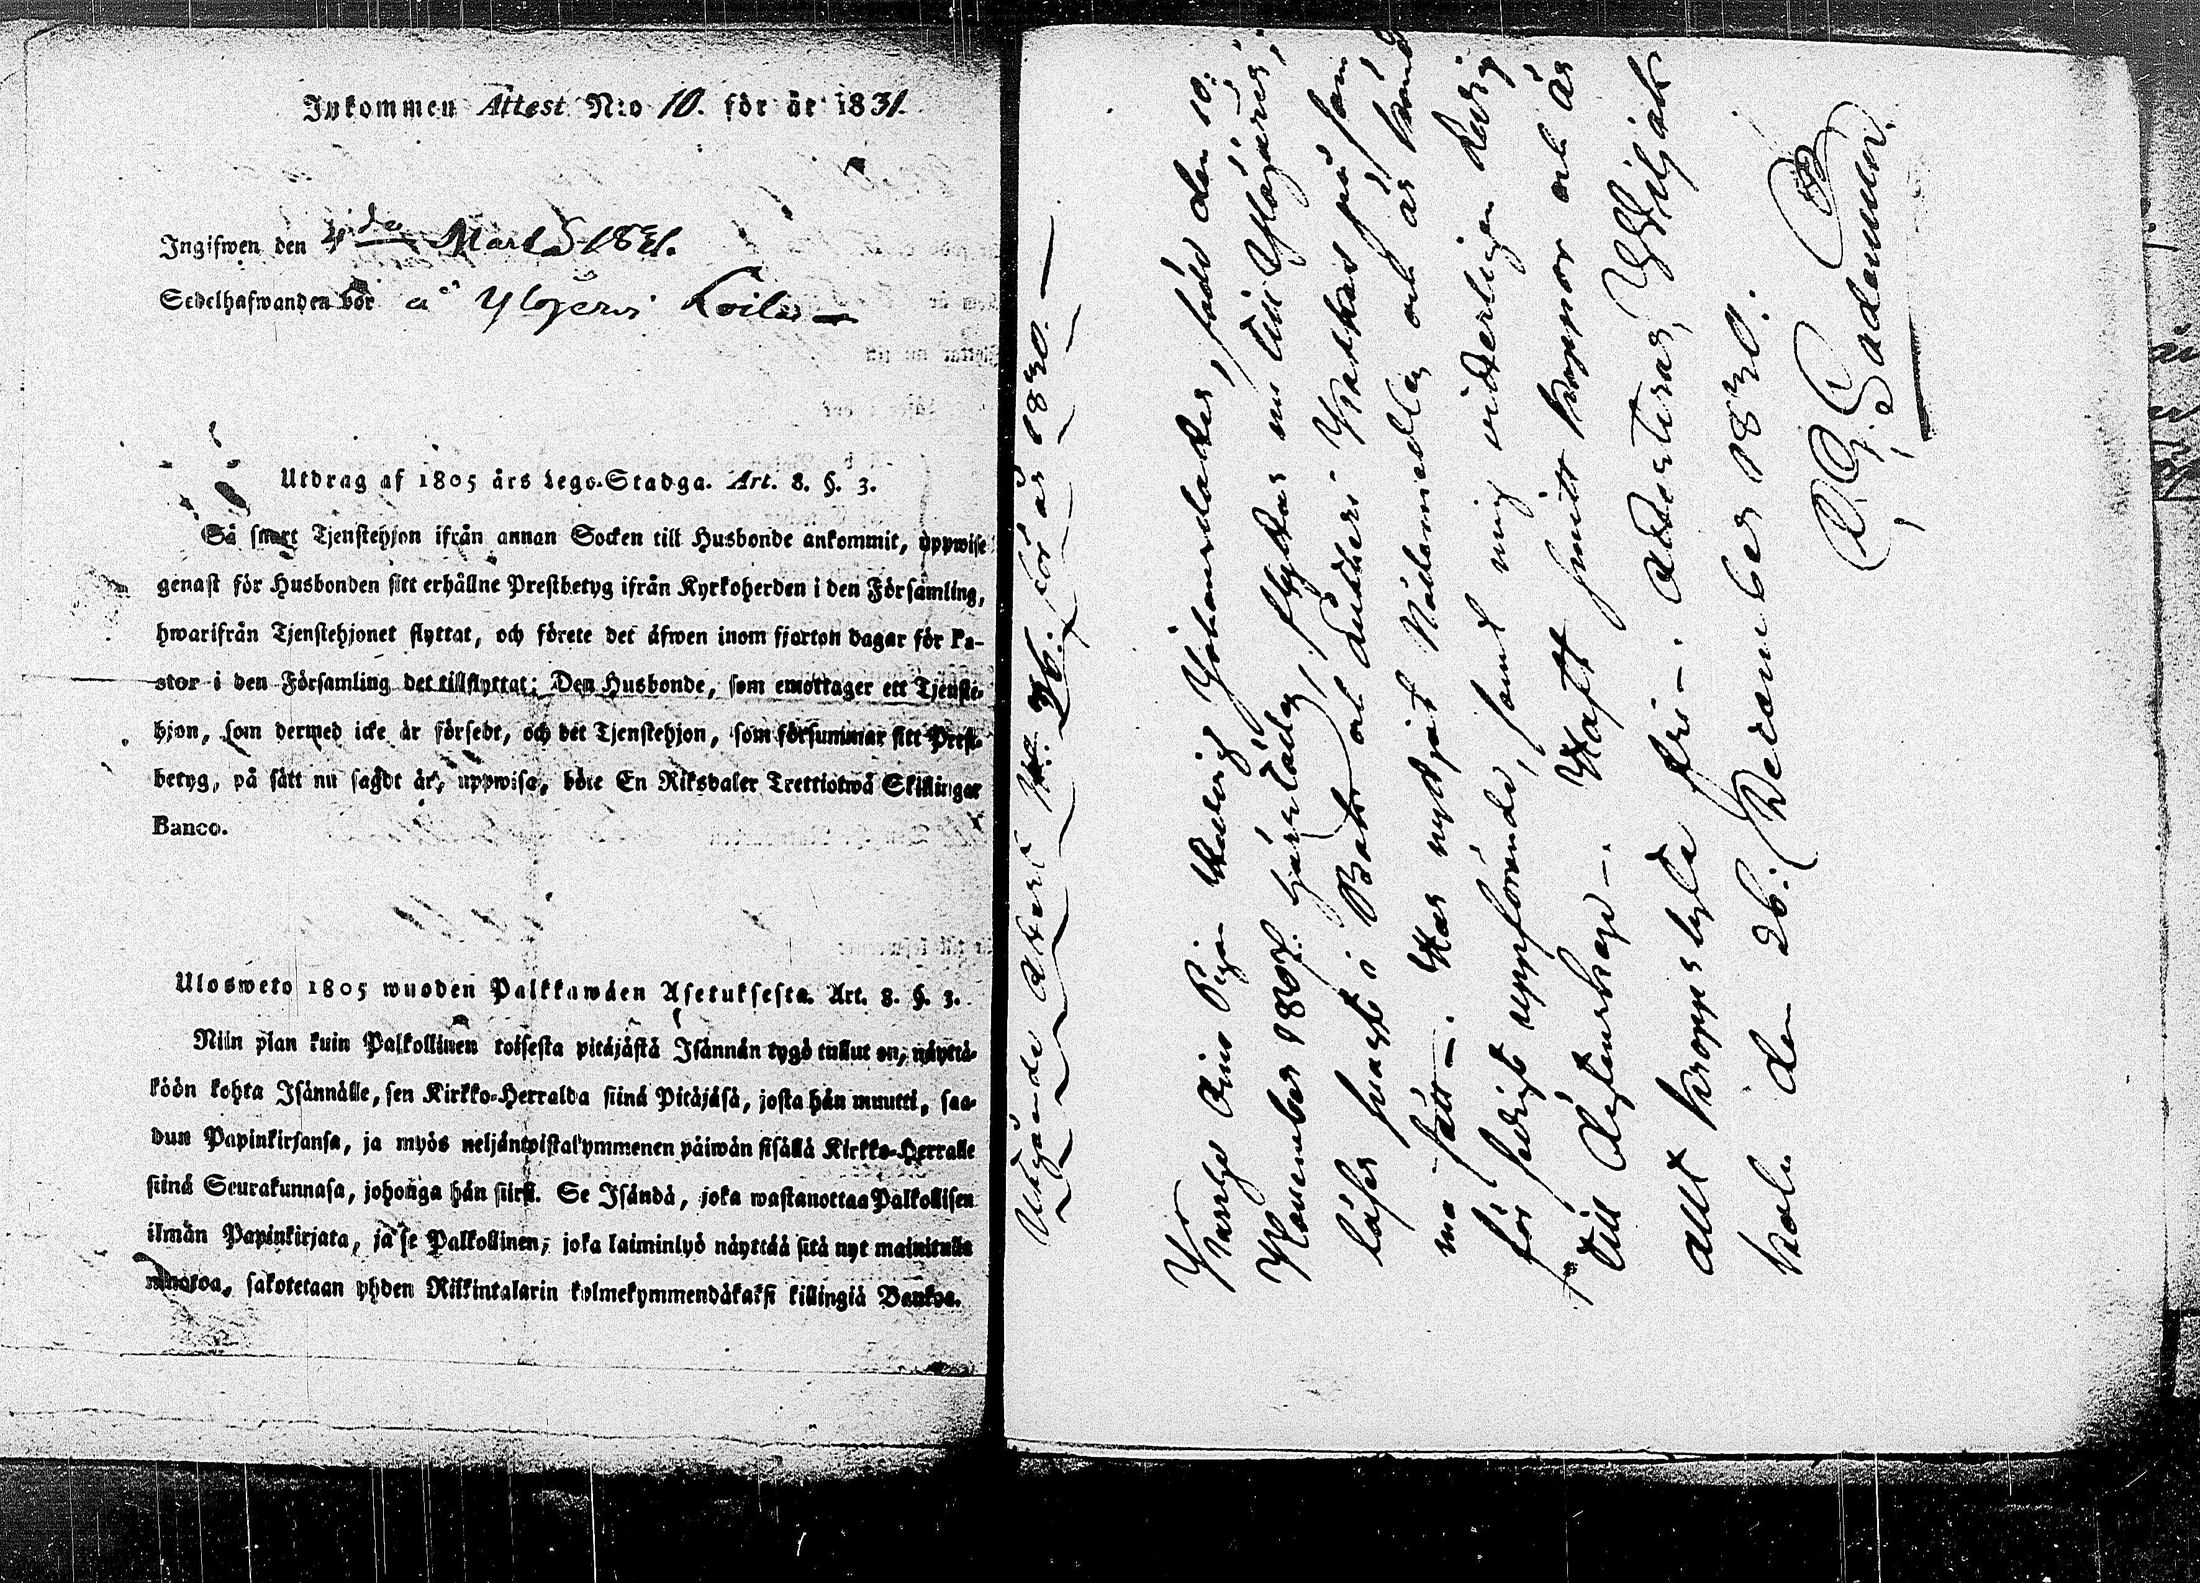 Inkommen Attest N:o 10. för år 1831.
Ingifwen den Mart 1831.
Sedelhafwanden bor å Ylöjerwi
Utdrag af 1805 års Lego-Stadga. Art. 8. §. 3.
Så snart Tjenstehjon ifrån annan Socken till Husbonde ankommit, uppwise
genast för Husbonden sitt erhållne Prestbetyg ifrån Kyrkoherden i den Församling,
hwarifrån Tjenstehjonet flyttat, och förete det äfwen inom fjorton dagar för Pa-
stor i den Församling det tillflyttat; Den Husbonde, som emottager ett Tjenste-
hjon, som dermed icke är försedt, och det Tjenstehjon, som försummar sitt Prest-
betyg, på sätt nu sagdt är, uppwisa, böte En Riksdaler Trettiotwå Skillingar
Banco.
Ulosweto 1805 wuoden Palkkawäen Asetuksesta. Art. 8. §. 3.
Niin pian kuin Palkollinen toisesta pitäjästä Isännän tygö tullut on, näyttä-
köön kohta Isännälle, sen Kirkko-Herralda siinä Pitäjäsä, josta hän muutti, saa-
dun Papinkirjansa, ja myös neljäntoistakymmenen päiwän sisällä Kirkko-Herralle
siinä Seurakunnasa, johonga hän siirsi. Se Isändä, joka wastanottaa Palkollisen
ilmän Papinkirjata, ja se Palkollinen, joka laiminlyö näyttää sitä nyt mainitulla
muotoa, sakotetaan yhden Riikintalarin kolmekymmendäkaksi killingiä Bankoa.
Utgående Attest N:o 26. för år 1830.
Pigan Hedvig Johansdotter, född den 10:
November 1807. flyttar nu till Ylöjärvi,
läser i Bok och
ma sätt –. Har nytjat Nådamedlen och är känd
för sedigt uppförande, samt mig
till Äktenskap –. Haft koppor och är
allt kroppslyte fri –. Attesteras,
den 26. December 1830.